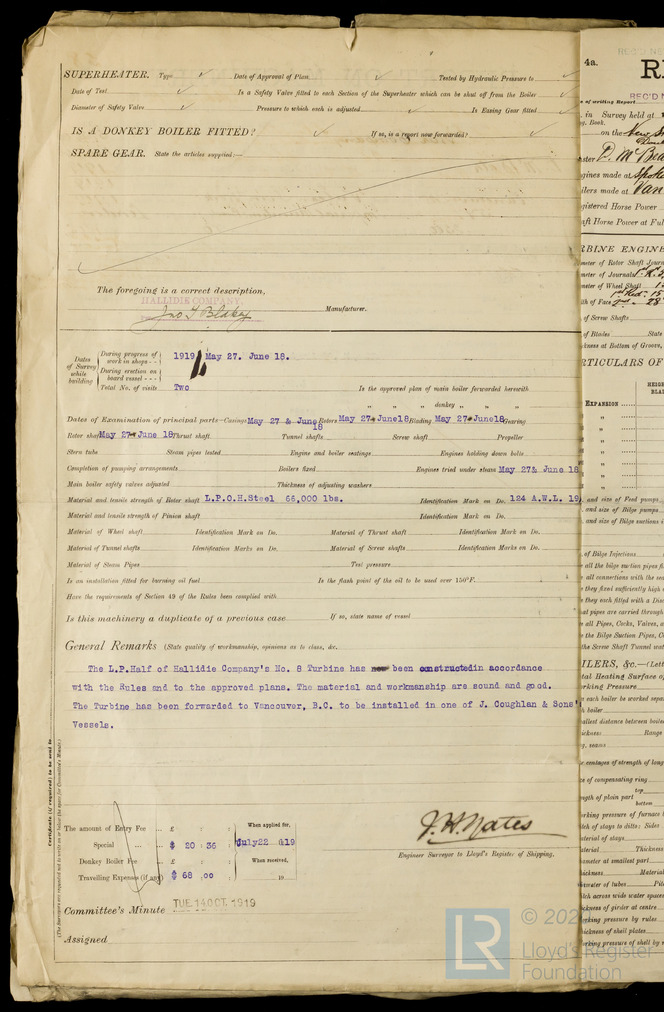 SUPERHEATER. Type ✓ Date of Approval of Plan ✓ Tested by Hydraulic Pressure to ✓
Date of Test ✓ Is a Safety Valve fitted to each Section of the Superheater which can be shut off from the Boiler ✓
Diameter of Safety Valve ✓ Pressure to which each is adjusted ✓ Is Easing Gear fitted ✓
IS A DONKEY BOILER FITTED? ✓ If so, is a report now forwarded? ✓
SPARE GEAR. State the articles supplied:—
The foregoing is a correct description,
HALLIDIE COMPANY.
Manufacturer.
Dates of Survey while building
During progress of work in shops - - 1919 May 27. June 18.
During erection on board vessel - - -
Total No. of visits Two Is the approved plan of main boiler forwarded herewith
" " " donkey " " "
Dates of Examination of principal parts—Casings May 27 & June 18 Rotors May 27 June18 Blading May 27 June18 Gearing
Rotor shaft May 27 June 18 Thrust shaft Tunnel shafts Screw shaft Propeller
Stern tube Steam pipes tested Engine and boiler seatings Engines holding down bolts
Completion of pumping arrangements Boilers fixed Engines tried under steam May 27& June 18
Main boiler safety valves adjusted Thickness of adjusting washers
Material and tensile strength of Rotor shaft L.P.O.H.Steel 66,000 lbs. Identification Mark on Do. 124 A.W.L. 19
Material and tensile strength of Pinion shaft Identification Mark on Do.
Material of Wheel shaft Identification Mark on Do. Material of Thrust shaft Identification Mark on Do.
Material of Tunnel shafts Identification Marks on Do. Material of Screw shafts Identification Marks on Do.
Material of Steam Pipes Test pressure
Is an installation fitted for burning oil fuel Is the flash point of the oil to be used over 150°F.
Have the requirements of Section 49 of the Rules been complied with
Is this machinery a duplicate of a previous case If so, state name of vessel
General Remarks (State quality of workmanship, opinions as to class, &c.
The L.P.Half of Hallidie Company's No. 8 Turbine has been constructed in accordance
with the Rules and to the approved plans. The material and workmanship are sound and good.
The Turbine has been forwarded to Vancouver, B.C. to be installed in one of J. Coughlan & Sons'
Vessels.
Certificate (if required) to be sent to
(The Surveyors are requested not to write on or below the space for Committee's Minute.)
The amount of Entry Fee ... £ : :
Special ... ... $ 20 : 36
Donkey Boiler Fee ... £ : :
Travelling Expenses (if any) $ 68 .00
When applied for,
July22 19
When received,
19
Engineer Surveyor to Lloyd's Register of Shipping.
Committee's Minute TUE. 14 OCT. 1919
Assigned
4a.
in Survey held at
on the
Master D. McBea
Engines made at Spoka
Boilers made at Van
Registered Horse Power
Shaft Horse Power at Ful
RBINE ENGINE
of Screw Shafts
of Blades State
RTICULARS OF
EXPANSION
and size of Feed pumps
and size of Bilge pumps
and size of Bilge suctions i
of Bilge Injections
all the bilge suction pipes fi
all connections with the sea
they fixed sufficiently high
they each fitted with a Dis
at pipes are carried through
all Pipes, Cocks, Valves, a
the Bilge Suction Pipes, C
the Screw Shaft Tunnel wat
ILERS, &c.—(Lett
tal Heating Surface of
rking Pressure
h boiler
© 202
LR
Lloyd's Register
Foundation